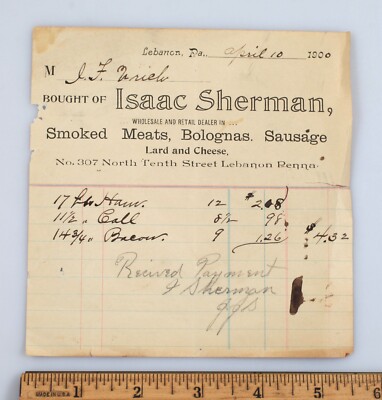 Lebanon, Pa., April 10 1900
M J. F. Urich
BOUGHT OF Isaac Sherman,
WHOLESALE AND RETAIL DEALER IN
Smoked Meats, Bolognas. Sausage
Lard and Cheese,
No. 307 North Tenth Street Lebanon Penna.
17 lb Ham. 12 $2.08
11 1/2 " Call 8 1/2 98
14 3/4 " Bacon. 9 1.26 $4.32
Recived Payment
I Sherman
MADE IN U.S.A.
1 2 3 4 5 6